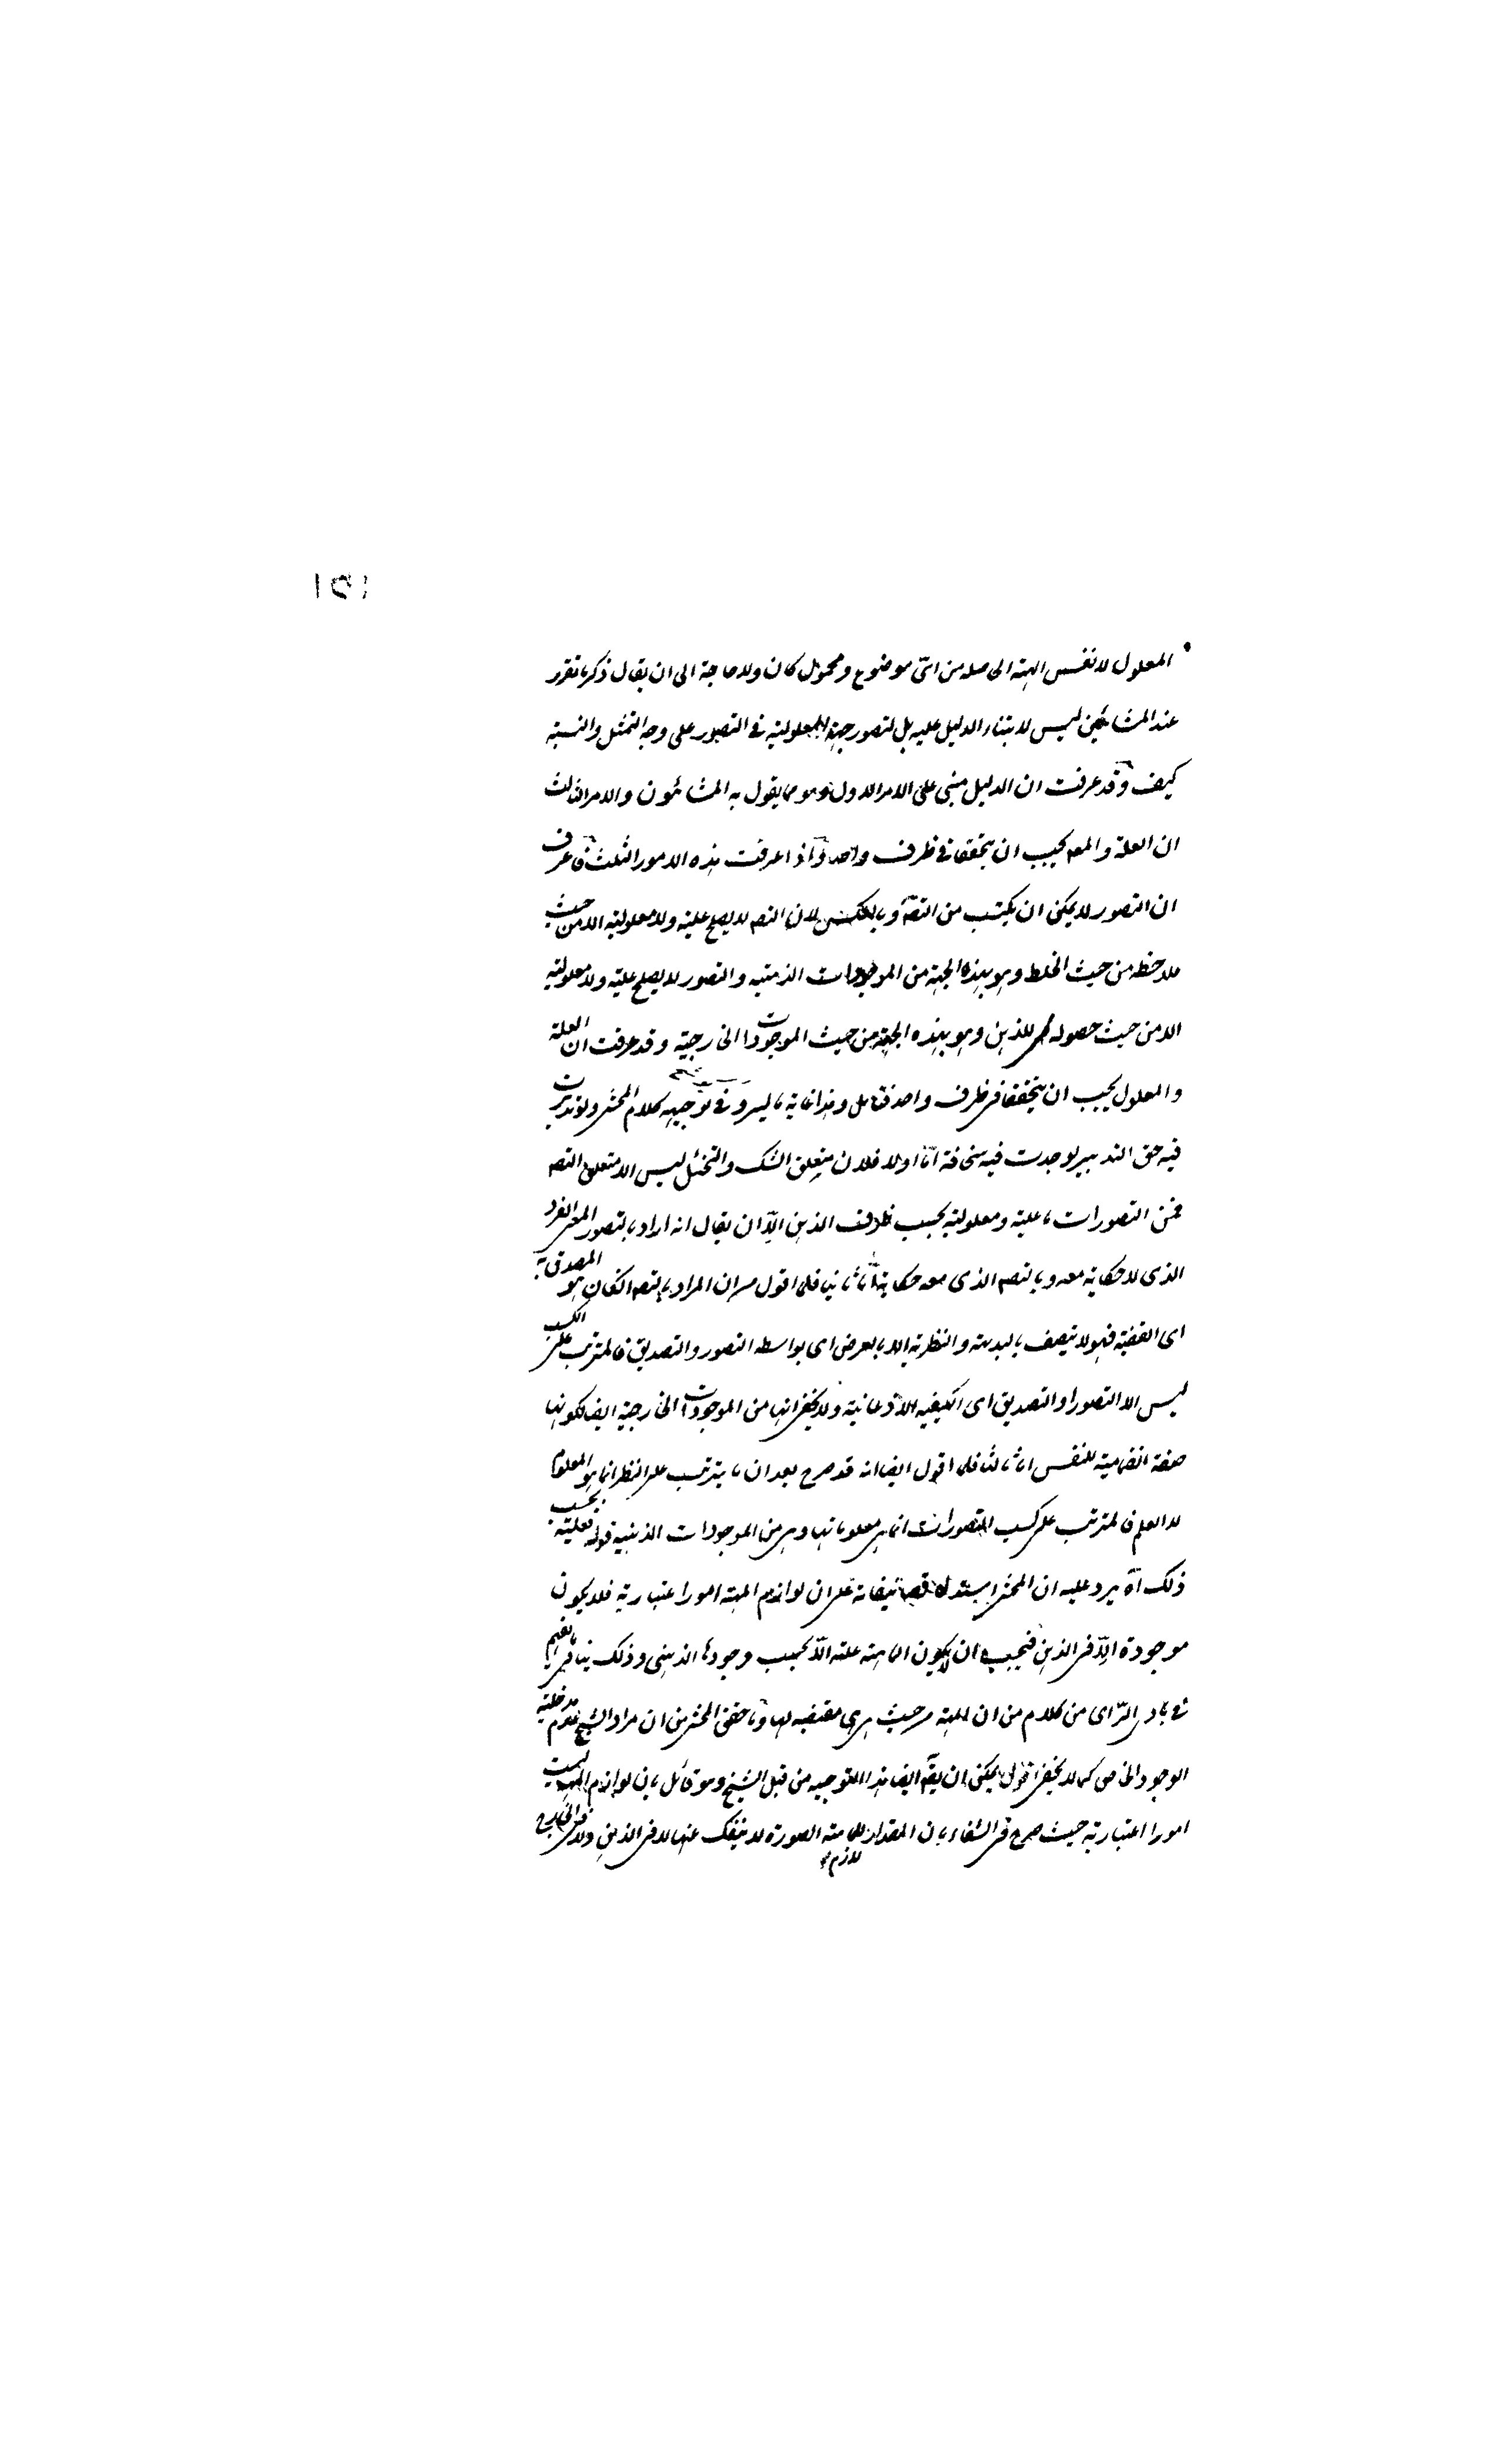 المعلول لا نفس الهية الحاصله من اىّ موضوع ومحمول كان ولا حاجة الى ان يقال ذكر ما تقرر
عند المشائين ليس لابتناء الدليل عليه بل لتصور جهة المعلولية فى التصور على وجه التمثل والنسبة
كيف وقد عرفت ان الدليل مبنى على الامر الاول وهو مما يقول به المشائون والامر الثالث
ان العلة والمعـ يجب ان يتحققا فى ظرف واحد واذا عرفت هذه الامور الثلثة فاعرف
ان التصور لا يمكن ان يكتسب من التصـ وبالعكس لان التصـ لا يصلح علية ولا معلولية الا من حيث
ملاحظه من حيث الخلط وهو بهذه الجهة من الموجودات الذهنية والتصور لا يصلح علية ولا معلولية
الا من حيث حصوله للذهن وهو بهذه الجهة من حيث الموجودات الخارجية وقد عرفت ان العلة
والمعلول يجب ان يتحققا فى ظرف واحد فتامل وهذا غاية ما تيسر فى توجيه كلام المحشى ولو تدبرت
فيه حق التدبير لوجدت فيه سخافة امّا اولا فلان متعلق الشك والتخيّل ليس الا متعلق التصـ
فمن التصورات ما علية ومعلولية بحسب ظرف الذهن الّا ان يقال انه اراد بالتصور المعنى المفرد
الذى لا حكاية معه وبالتصـ الذى معه حكاية امّا ثانيا فلما اقول من ان المراد بالتصـ ان كان هو المصدق به
اى القضية فهو لا يتصف بالبديهة والنظرية الا بالعرض اى بواسطه التصور والتصديق فالمترتب على الكسب
ليس الا التصور او التصديق اى الكيفية الاذعانية ولا يخفى انها من الموجودات الخارجية ايضا لكونها
صفة انضمامية للنفس امّا ثالثا فلما اقول ايضا انه قد صرح بعد ان ما يترتب على النظر انما هو المعلوم
لا العلم فالمترتب على كسب التصورات انما هى معلوماتها وهى من الموجودات الذهنية قوله فعليته بحسب
ذلك آه يرد عليه ان المحشى استدل فى تصانيفاته على ان لوازم المهية امورا اعتبارية فلا يكون
موجودة الّا فى الذهن فيجب ان لا يكون الماهية علة الّا بحسب وجودها الذهنى وذلك ينافى ما يفهم
فى بادى الرّاى من كلامه من ان المهية من حيث هى هى مقتضيه لها وما حقق المحشى من ان مراد الشيخ عدم مدخلية
الوجود الخاص كما لا يخفى اقول يمكن ان يقـ ايضا هذا التوجيه من قبل الشيخ وهو قائل بان لوازم المهية ليست
امورا اعتبارية حيث صرح فى الشفاء بان المقدار لازم للماهية الصورة لا ينفك عنها لا فى الذهن ولا فى الخارج